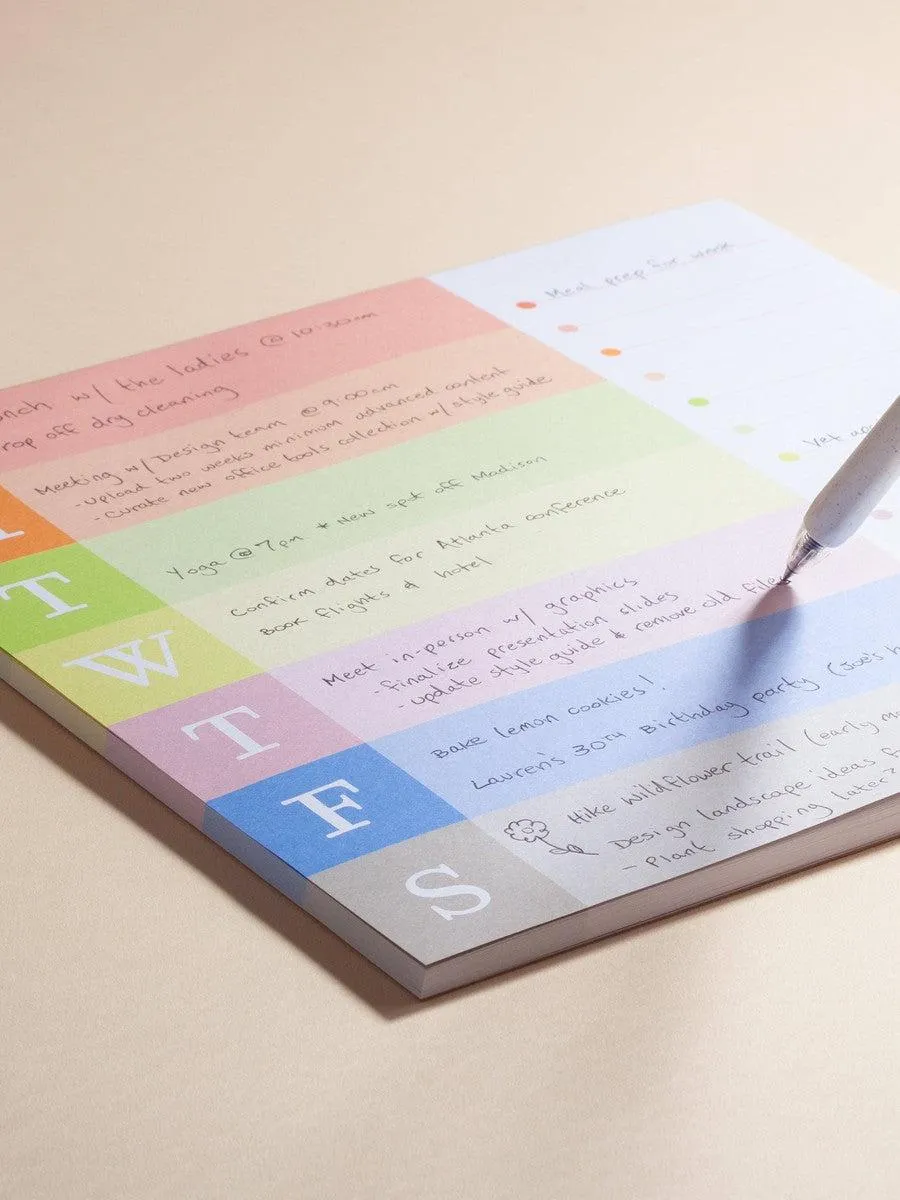 w/ the ladies @ 10:30am
drop off dry cleaning
Meeting w/ Design team @ 9:00am
- Upload two weeks minimum advanced content
- Curate new office tools collection w/ style guide
T
Yoga @ 7pm * New spot off Madison
W
Confirm dates for Atlanta conference
Book flights & hotel
T
Meet in-person w/ graphics
- finalize presentation slides
- update style guide & remove old files
F
Bake lemon cookies!
Lauren's 30TH Birthday party (Joe's
S
Hike wildflower trail (early
Design landscape ideas
- Plant shopping later?
Meal prep for week
Vet